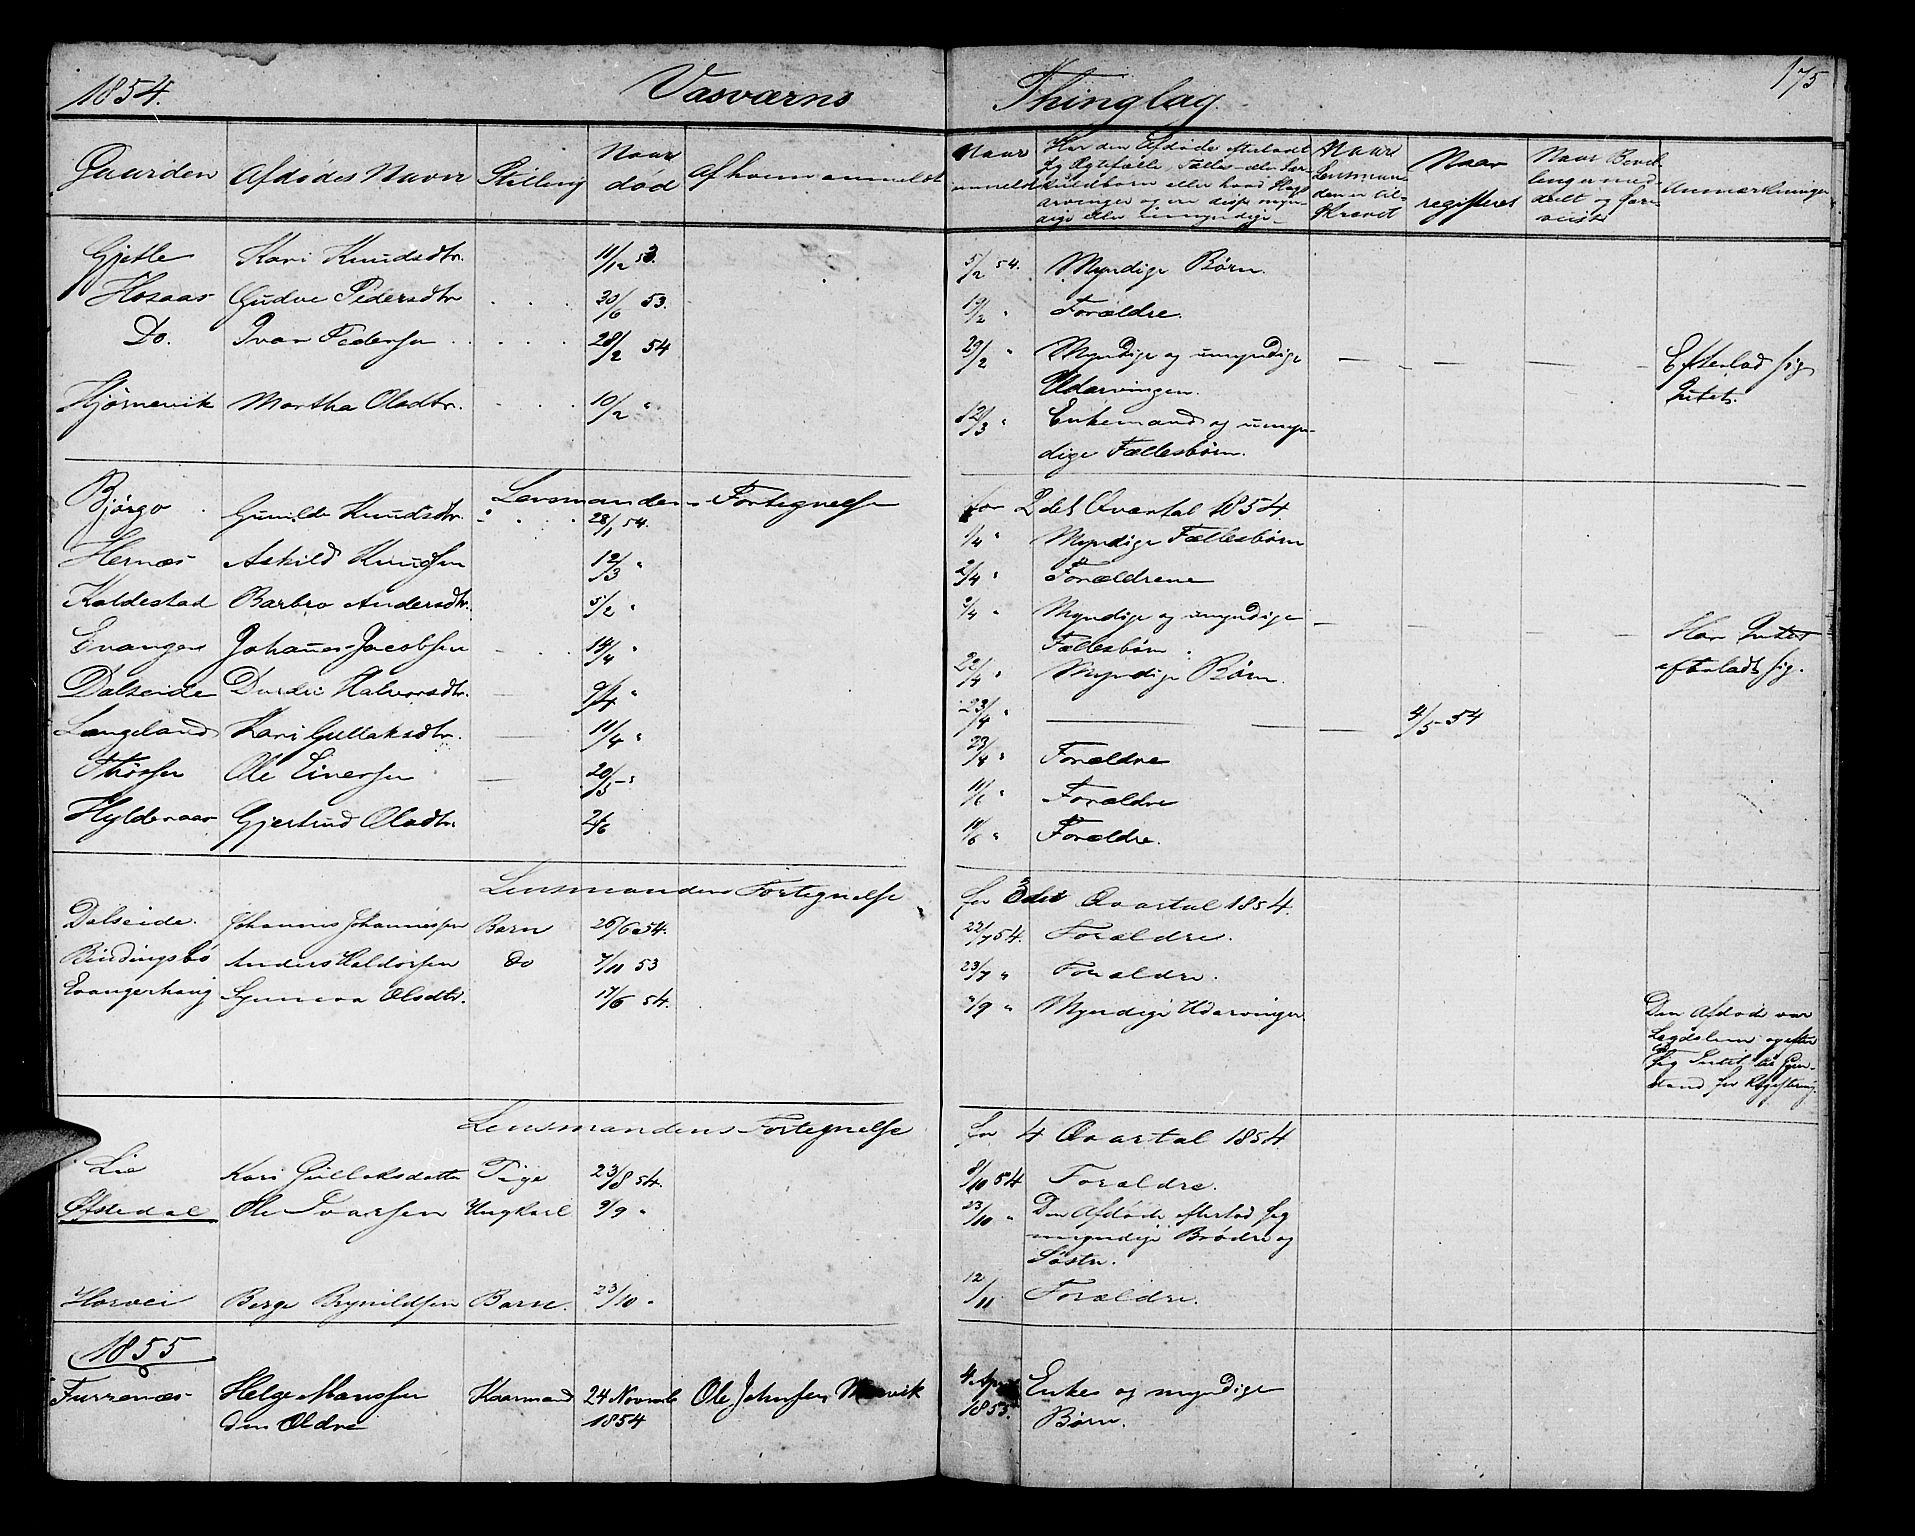 1854. Vasværns Thinglag 175
Gaarden Afdødes Navn Stilling Naar død Af hvem anmeldt Naar anmeldt Har den Afdøde efterladt sig Ægtefælle, Fælles- eller Særkuldbørn eller hvad Slags arvinger og ere disse myndige eller umyndige Naar Lensmanden er tilskrevet Naar registeret Naar Bevillinger meddeelt og forevist Anmærkninger
Gjetle Kari Knudsdtr. 11/12 53. 5/2 54. Myndige Børn.
Hosaas Gudve Pedersdtr 30/6 53. 19/2 " Forældre.
Do. Ivar Pedersen 28/2 54 29/2 " Myndige og umyndige
Udarvingen. Efterlod sig
Intet.
Hjørnevik Martha Olsdtr. 10/2 " 12/3 " Enkemand og umyn-
dige Fællesbørn.
Lensmandens Fortegnelse for 2det Qvartal 1854.
Bjørgo Gunilde Knudsdtr. 28/1 54. 1/4 " Myndige Fællesbørn
Hernæs Askild Knudsen 12/3 " 2/4 " Forældrene
Kaldestad Barbro Andersdtr. 5/2 " 2/4 " Myndige og umyndige
Fællesbørn.
Evanger Johannes Jacobsen 14/4 " 22/4 " Myndige Børn. Har Intet
efterladt sig.
Dalseide Durdei Halvorsdtr. 9/4 " 23/4 " 4/5 54
Langeland Kari Gullaksdtr. 11/4 " 23/4 " Forældre
Ole Einersen 20/5 " 11/6 " Forældre
Hyldenaar Gjertrud Olsdtr. 2/6 11/6 " Forældre.
Lensmandens Fortegnelse for 3det Qvartal 1854.
Dalseide. Johannis Johannessen Barn 26/6 54. 22/7 54. Forældre.
Birdingsbø Anders Haldorsen Do 7/11 53 23/7 " Forældre.
Evangerhaug Synneva Olsdtr. 17/6 54. "/9 " Myndige Udarvinger.
Den Afdøde var
Legdslem og efter
lod sig Intet til Gjen-
stand for Registering.
Lensmandens Fortegnelse for 4 Qvartal 1854
Lie Kari Gullaksdatter Pige 23/8 54. 8/10 54 Forældre.
Øfstedal Ole Ivarsen Ungkarl 9/9 " 23/10 " Den Afdøde efterlod sig
myndige Brødre og
Søstre.
Horvei Børge Brynildsen Barn. 23/10 " 12/11 Forældre.
1855
Furrenæs Helge Monssen Kaarmand 24 Novemb Ole Johnsen Mærvik 4 April Enkes og myndige
den Ældre 1854 1855. Børn.